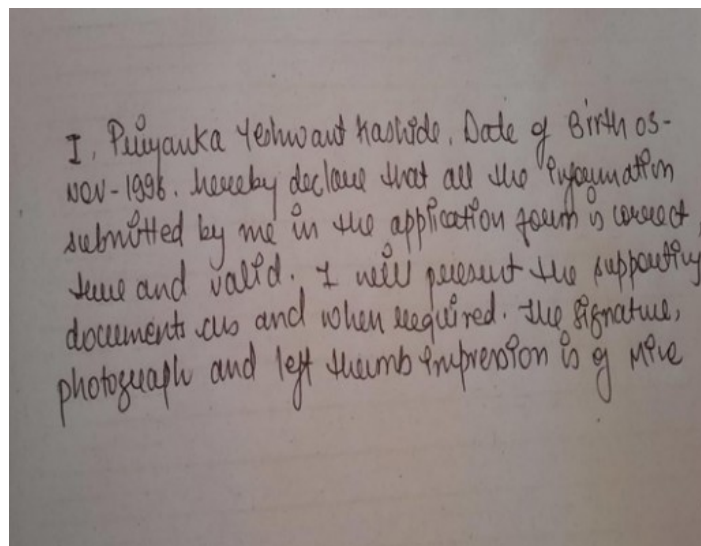 I, Priyanka Yeshwant Kashide, Date of Birth 05-
NOV-1996. hereby declare that all the information
submitted by me in the application form is correct,
true and valid. I will present the supporting
documents as and when required. The signature,
photograph and left thumb impression is of Mine